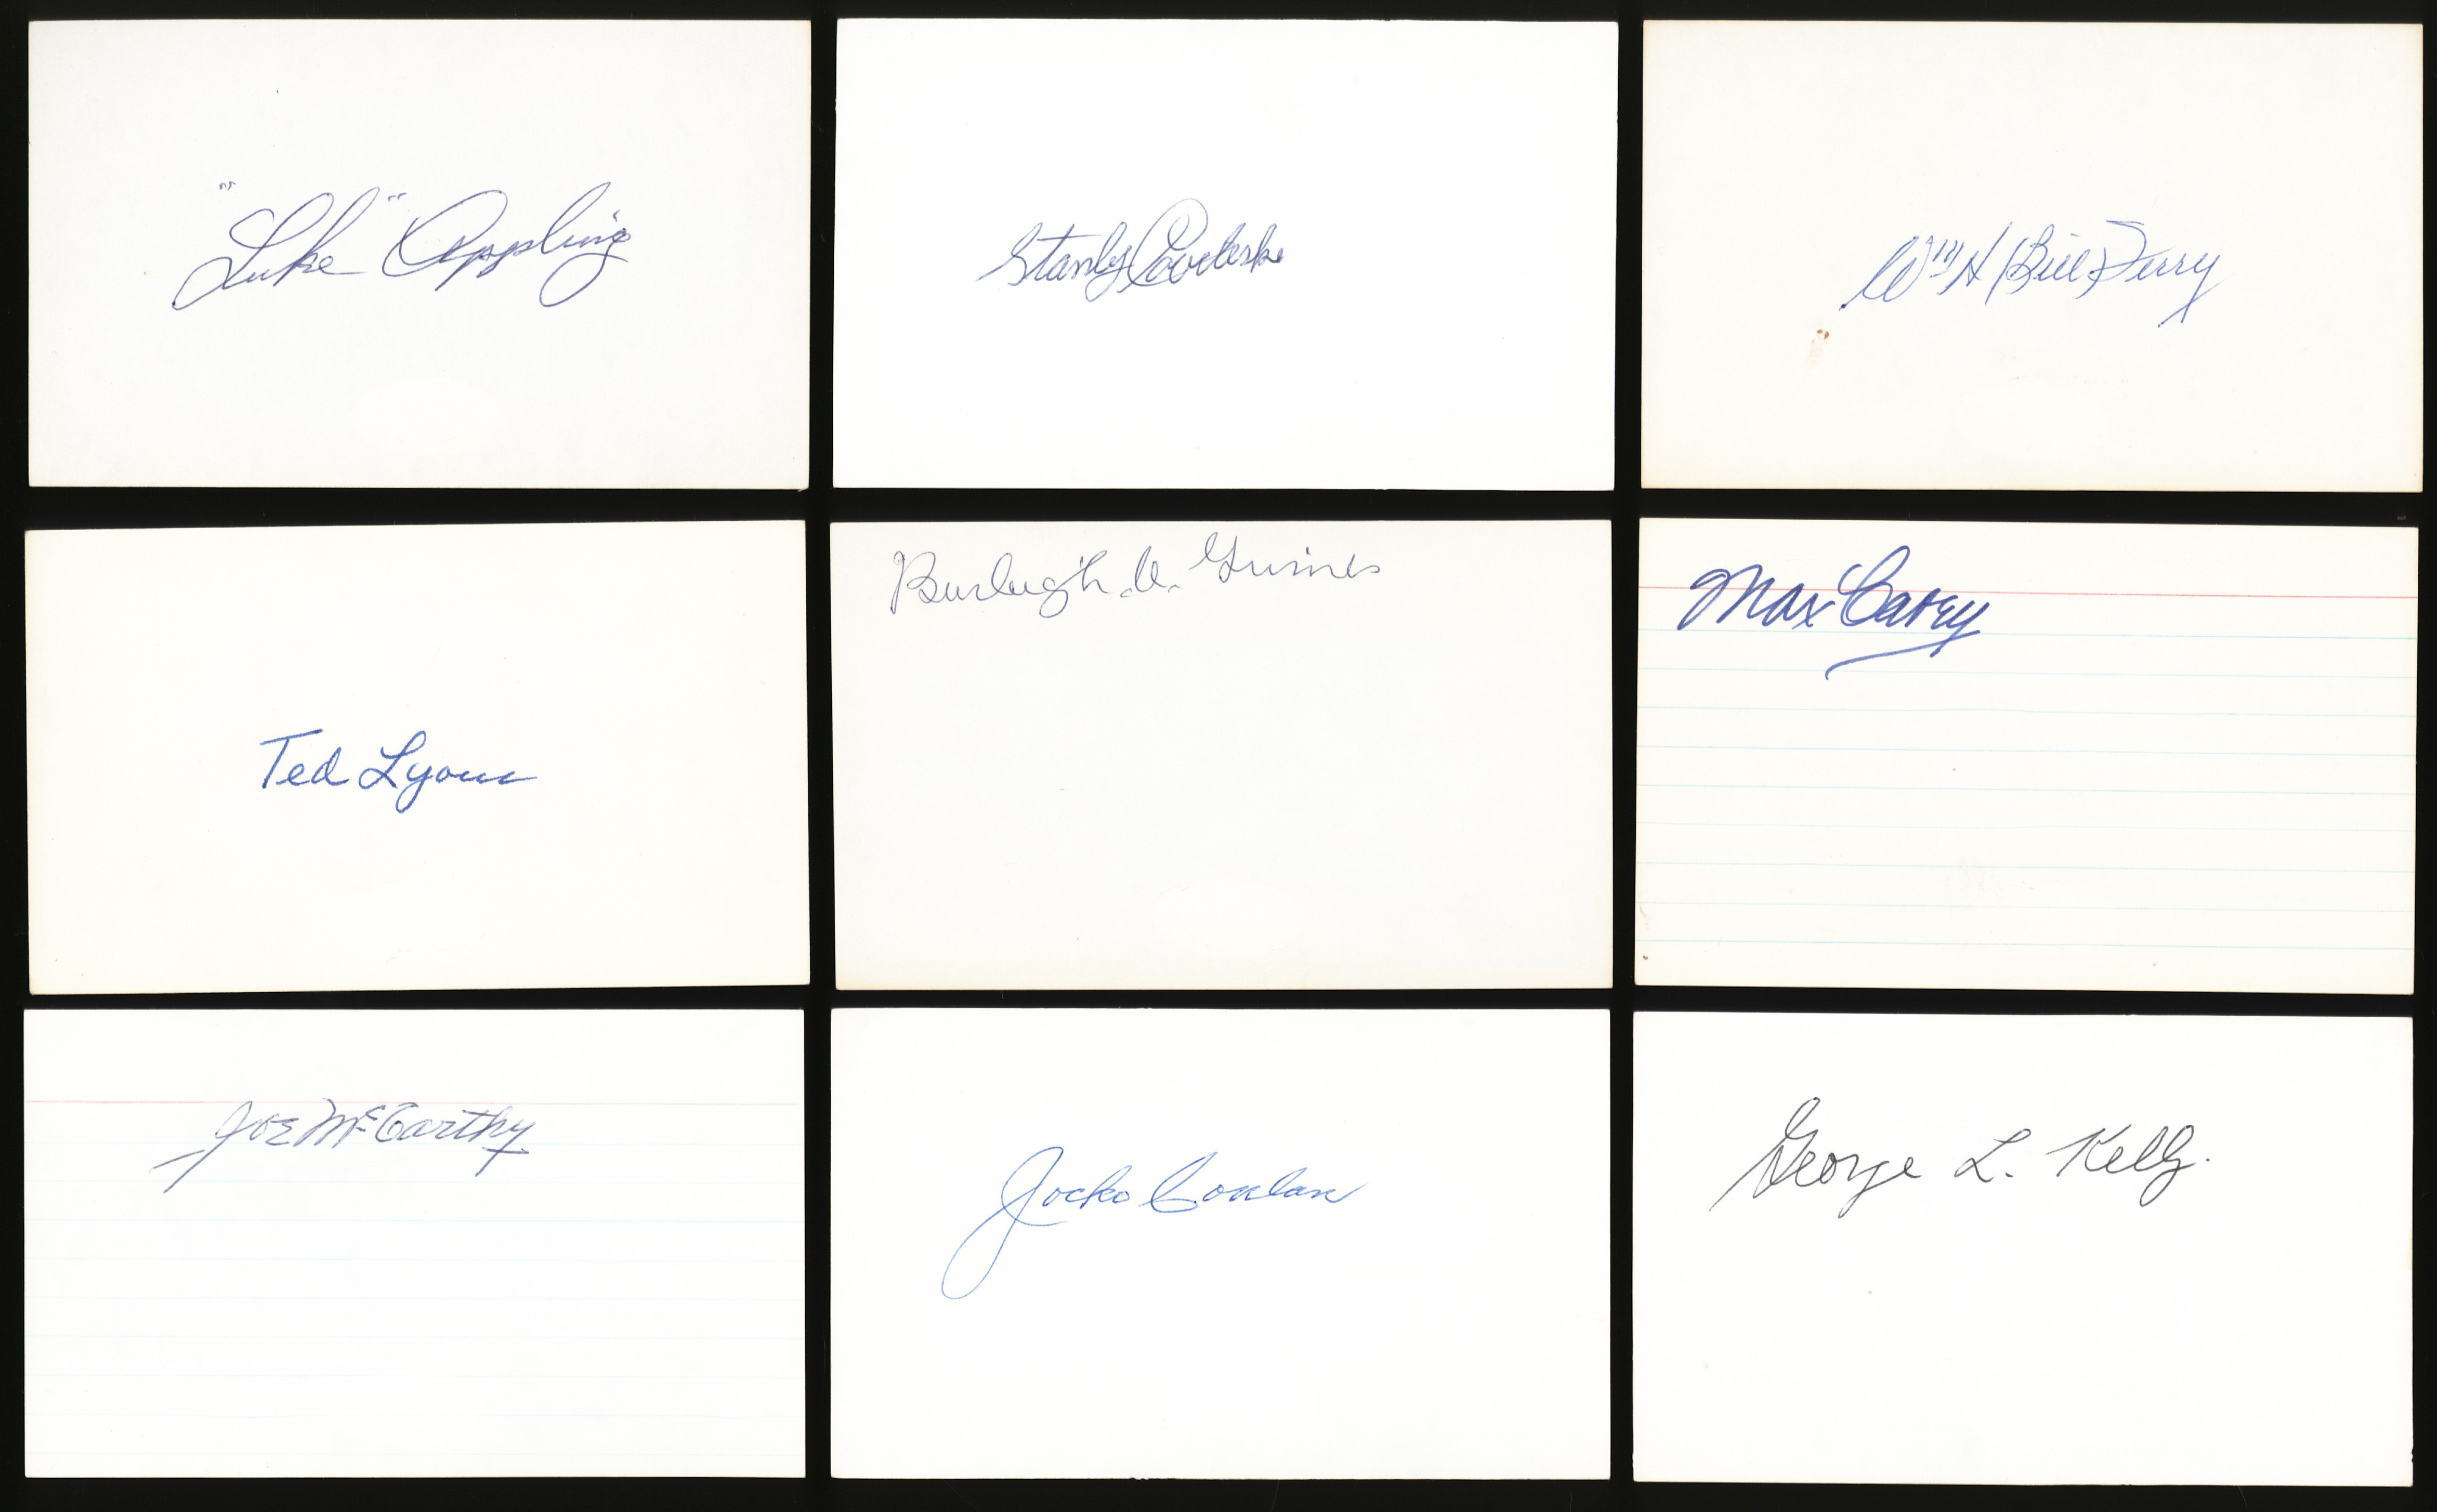 "Luke" Appling
Stanley Coveleski
Wm H (Bill) Terry
Ted Lyons
Burleigh A. Grimes
Max Carey
Joe McCarthy
Jocko Conlan
George L. Kelly.